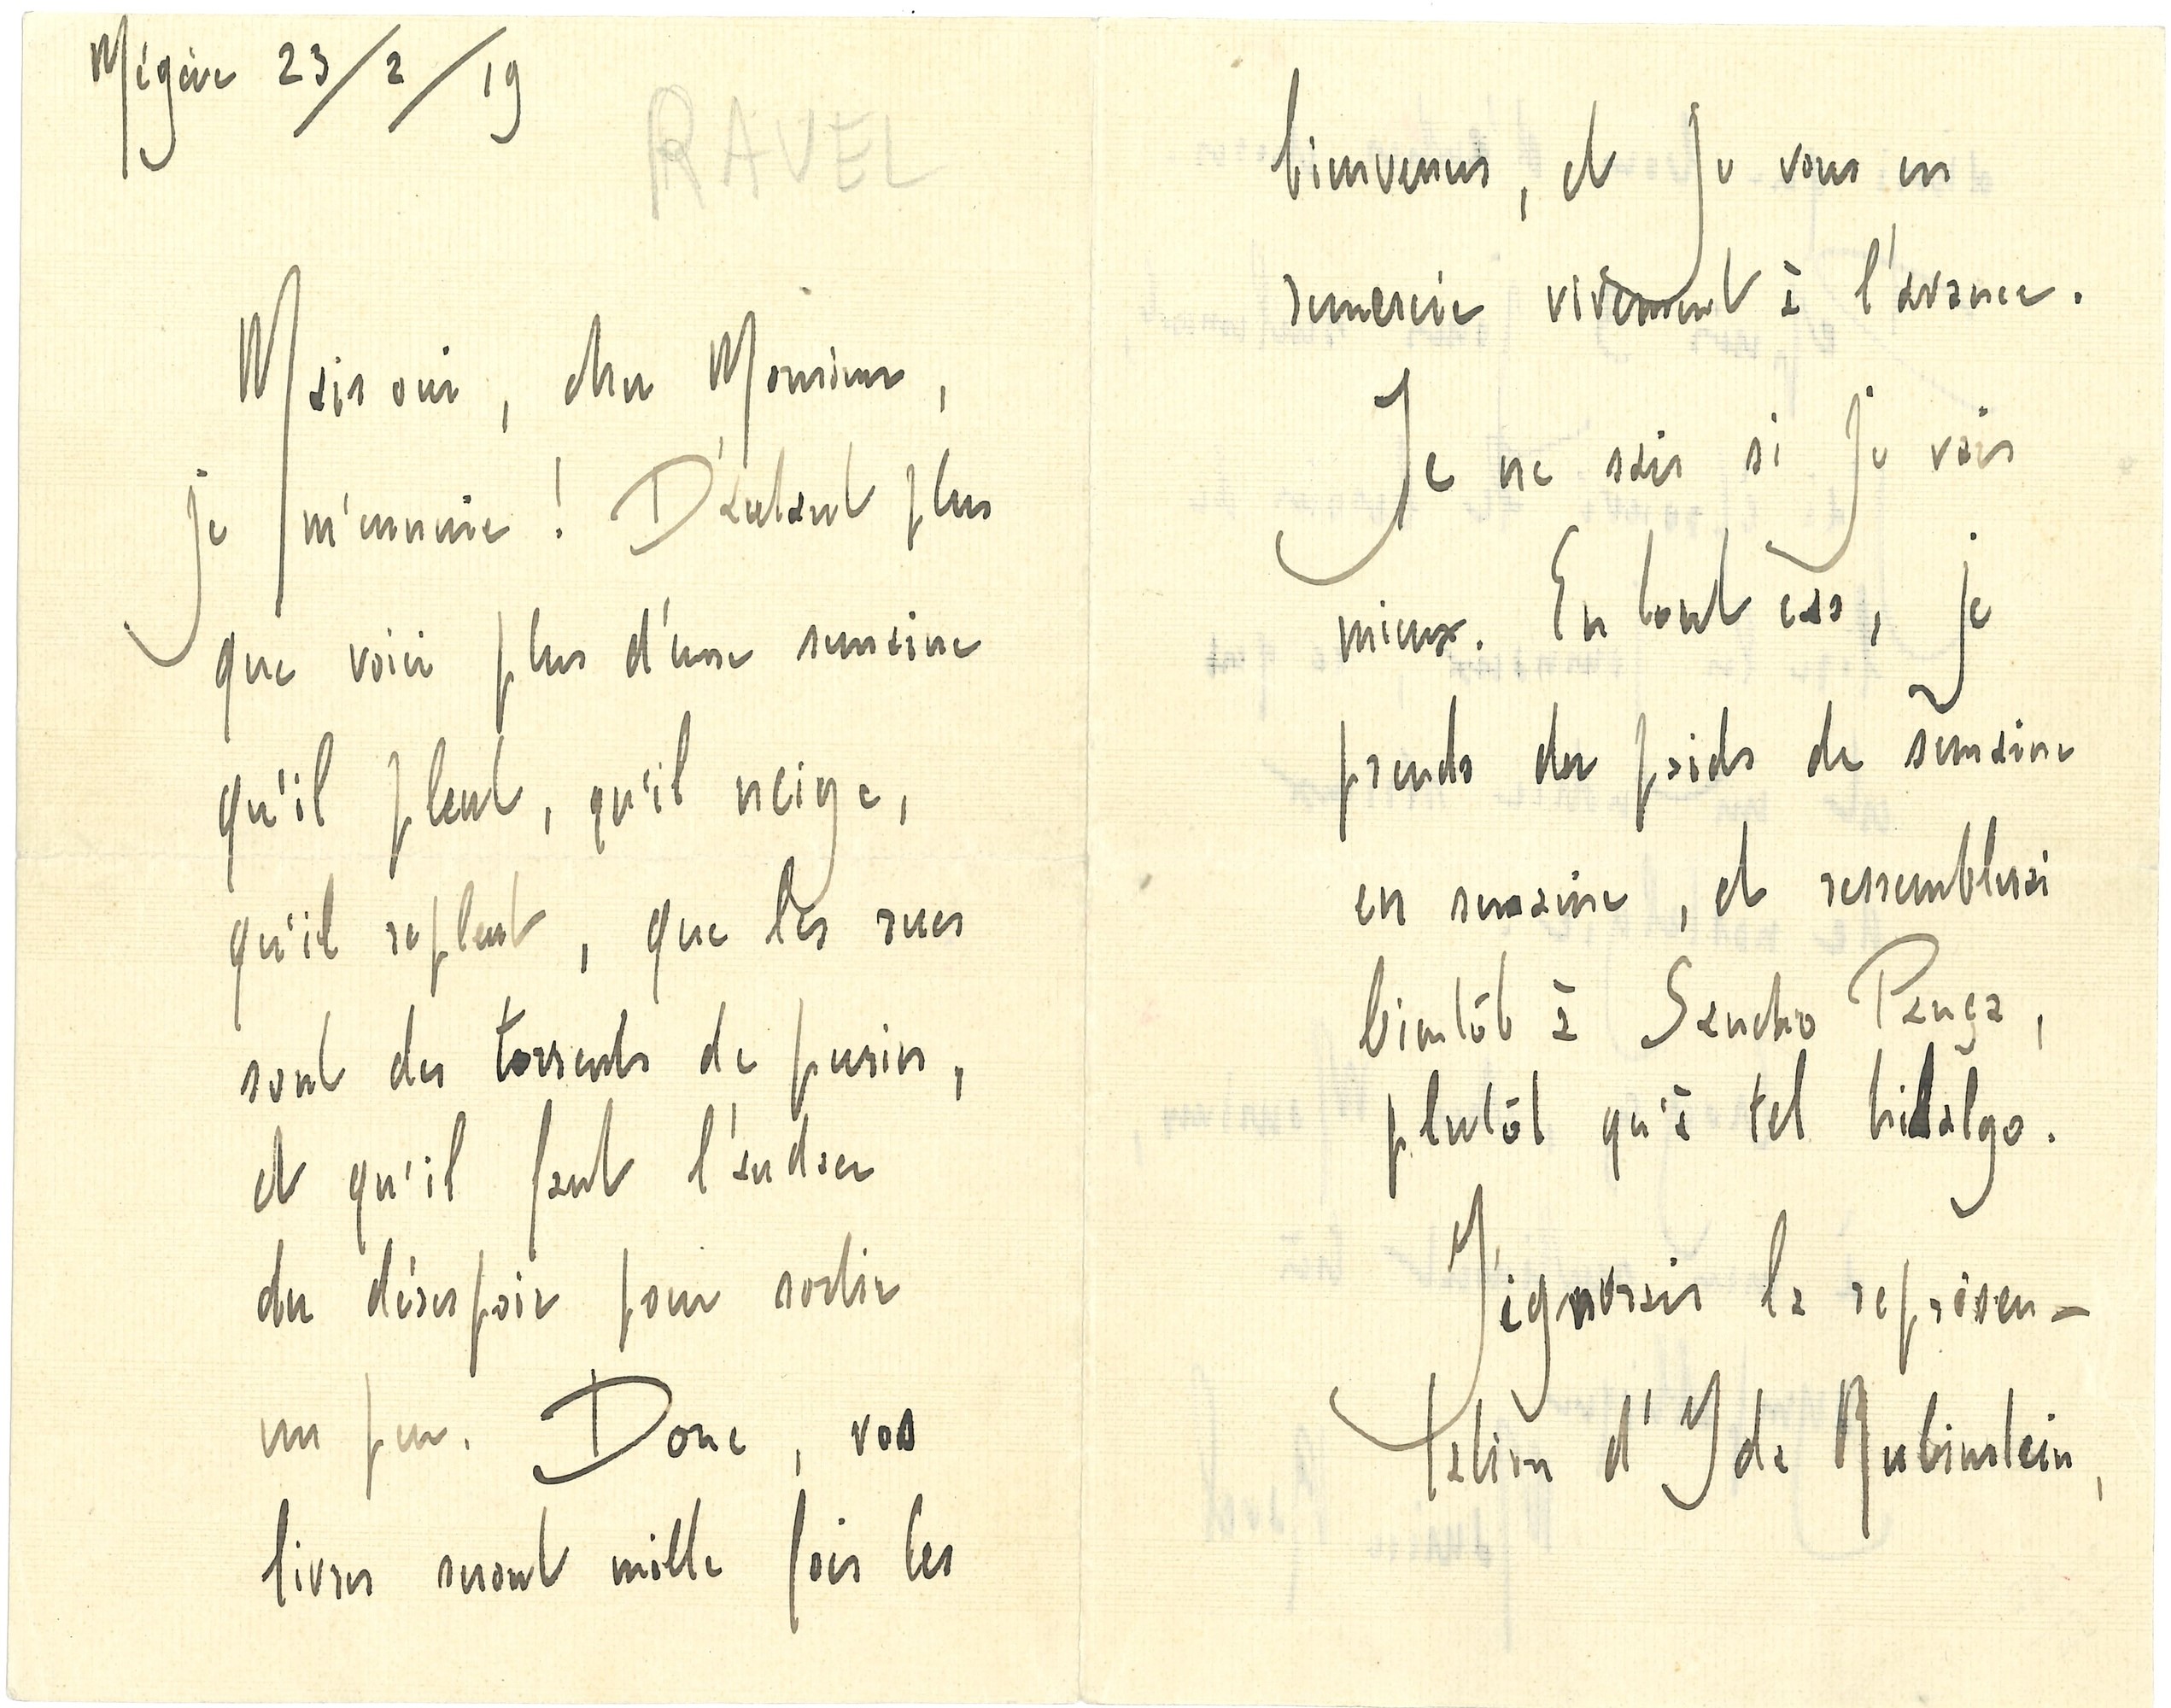 Mégève 23/2/19
RAVEL
Mais oui, cher Monsieur,
je m'ennuie ! D'autant plus
que voici plus d'une semaine
qu'il pleut, qu'il neige,
qu'il repleut, que les rues
sont des torrents de purin,
et qu'il faut l'audace
du désespoir pour sortir
un peu. Donc, vos
livres seront mille fois les
bienvenus, et je vous en
remercie vivement à l'avance.
Je ne sais si je vais
mieux. En tout cas, je
prends du poids de semaine
en semaine, et ressemblerai
bientôt à Sancho Pança,
plutôt qu'à tel hidalgo.
J'ignorais la représen-
tation d'Yda Rubinstein,